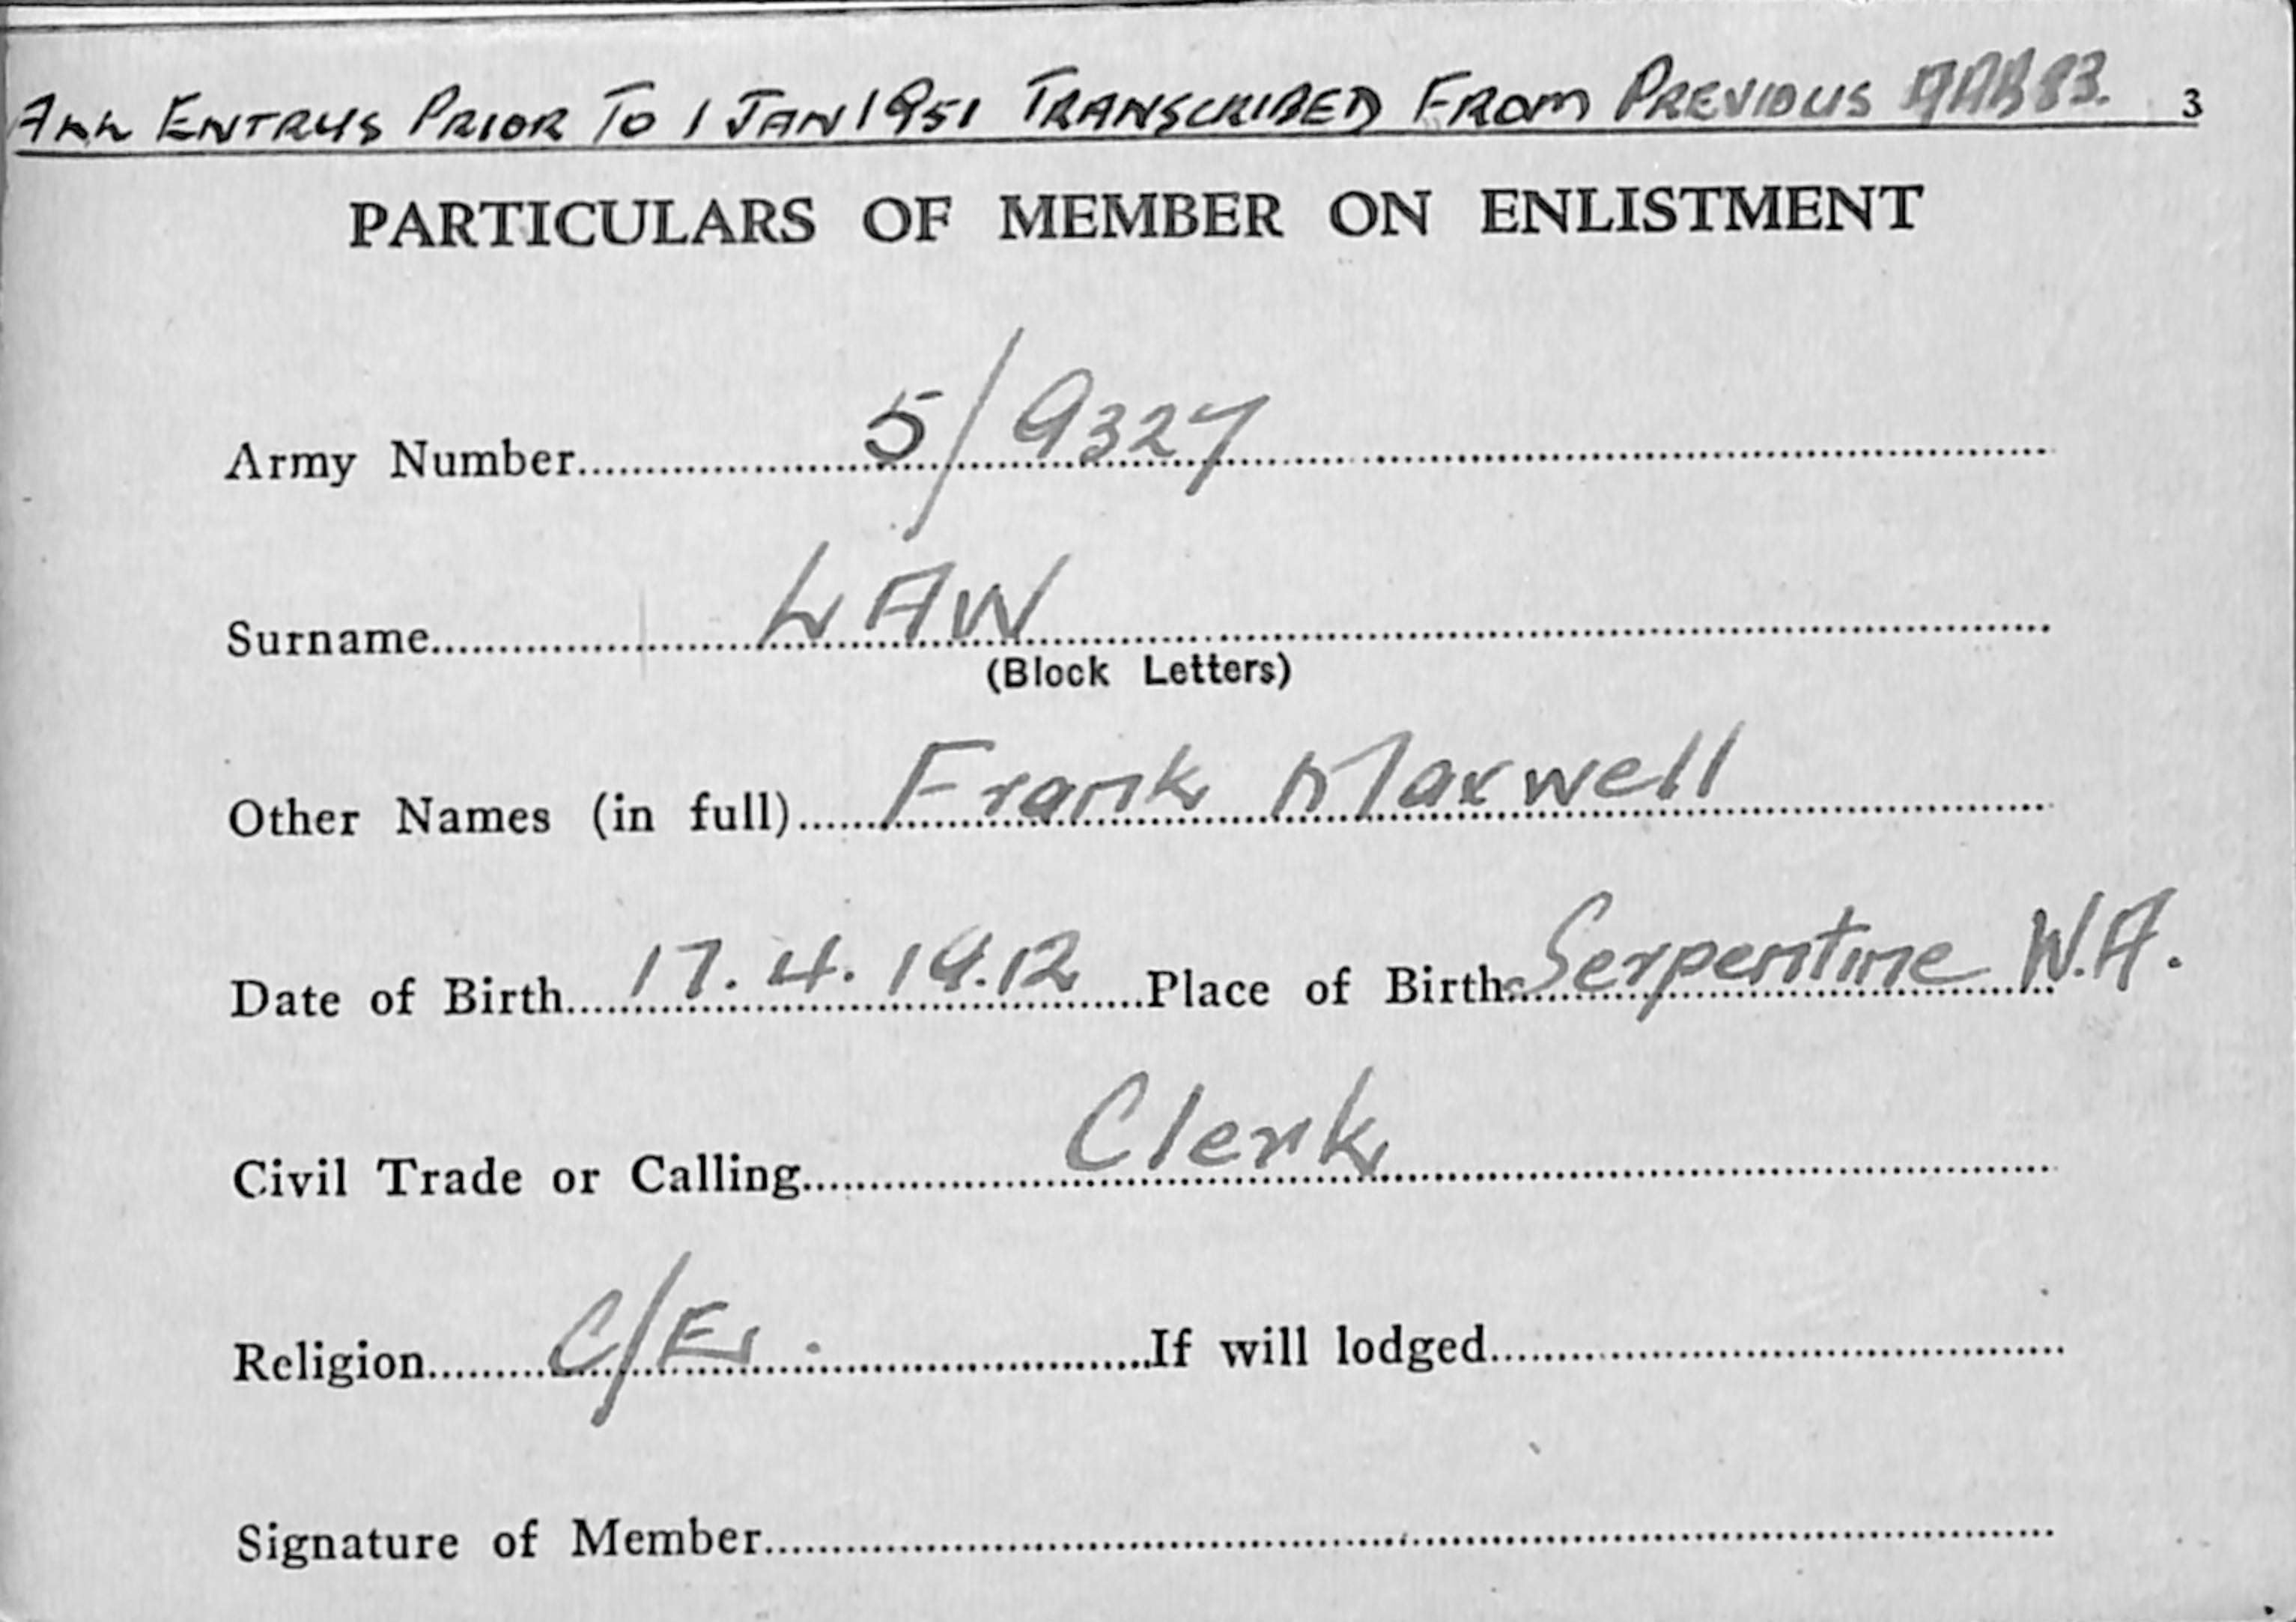 ALL ENTRYS PRIOR TO 1 JAN 1951 TRANSCRIBED FROM PREVIOUS AAB83. 3
PARTICULARS OF MEMBER ON ENLISTMENT
Army Number 5/9327
Surname LAW
(Block Letters)
Other Names (in full) Frank Maxwell
Date of Birth 17.4.1912 Place of Birth Serpentine W.A.
Civil Trade or Calling Clerk
Religion C/E. If will lodged
Signature of Member